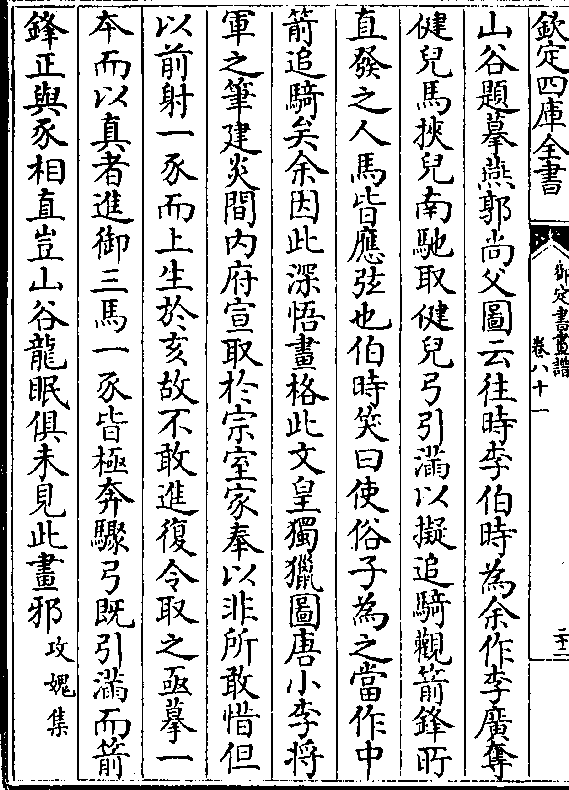 欽定四庫全書
御定書畫譜
卷八十一
二十二
山谷題摹燕郭尚父圖云往時李伯時為余作李廣奪
健兒馬挾兒南馳取健兒弓引滿以擬追騎觀箭鋒所
直發之人馬皆應弦也伯時笑曰使俗子為之當作中
箭追騎矣余因此深悟畫格此文皇獨獵圖唐小李將
軍之筆建炎間內府宣取於宗室家奉以非所敢惜但
以前射一豕而上生於亥故不敢進復令取之亟摹一
本而以真者進御三馬一豕皆極奔驟弓既引滿而箭
鋒正與豕相直豈山谷龍眠俱未見此畫邪攻媿集